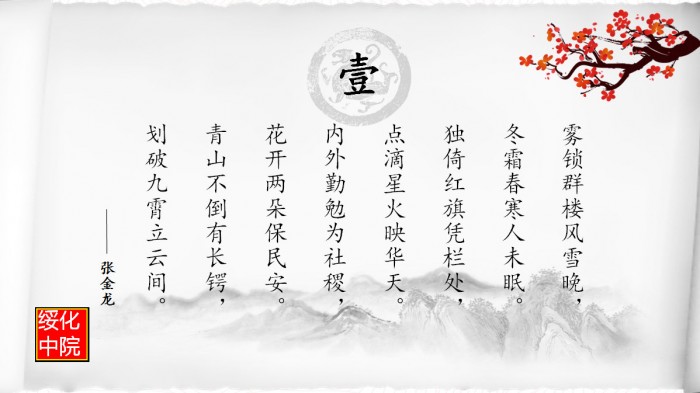 壹
雾锁群楼风雪晚，
冬霜春寒人未眠。
独倚红旗凭栏处，
点滴星火映华天。
内外勤勉为社稷，
花开两朵保民安。
青山不倒有长锷，
划破九霄立云间。
——张金龙
绥化
中院